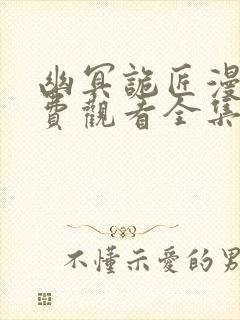 幽冥詭匠漫
費觀看全集
不懂示愛的男